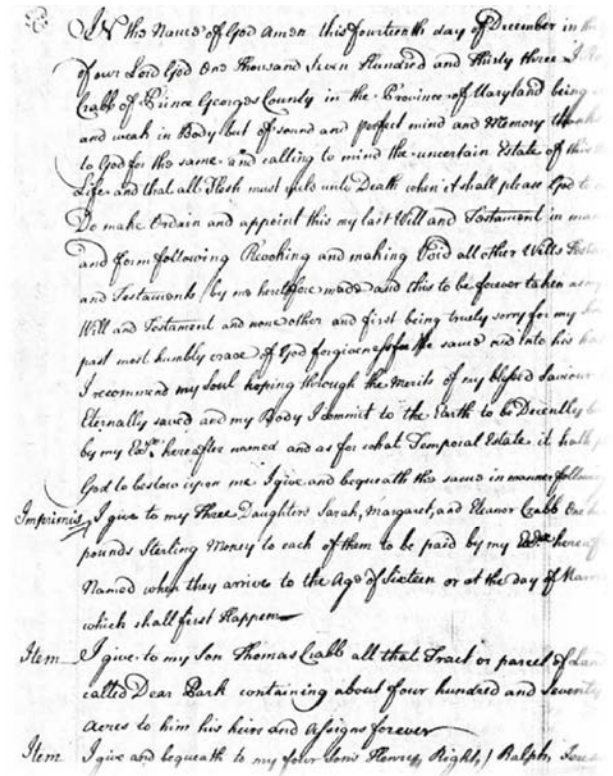 IN the Name of God Amen this fourteenth day of December in the
of our Lord God One Thousand Seven Hundred and Thirty three I
Crabb of Prince Georges County in the Province of Maryland being
and weak in Body but of sound and perfect mind and Memory thanks
to God for the same and calling to mind the uncertain Estate of this
Life and that all Flesh must yeld unto Death when it shall please God to
Do make Ordain and appoint this my last Will and Testament in man
and form following Revoking and making Void all other Wills Testa
and Testaments by me heretofore made and this to be forever taken as my
Will and Testament and none other and first being truely sorry for my
past most humbly crave of God forgiveness for the same and into his ha
I recommend my Soul hoping through the Merits of my blessed Saviour
Eternally saved and my Body I commit to the Earth to be Decently b
by my Exrs. hereafter named and as for what Temporal Estate it hath p
God to bestow upon me I give and bequeath the same in manner following
Imprimis I give to my Three Daughters Sarah, Margaret, and Eleanor Crabb One hu
pounds Sterling Money to each of them to be paid by my hereaf
Named when they arrive to the Age of Sixteen or at the day of Marri
which shall first Happen
Item I give to my Son Thomas Crabb all that Tract or parcel of Lan
called Dear Park containing about four hundred and Seventy
Acres to him his heirs and Assigns forever
Item I give and bequeath to my four Sons Henry, Right, Ralph,